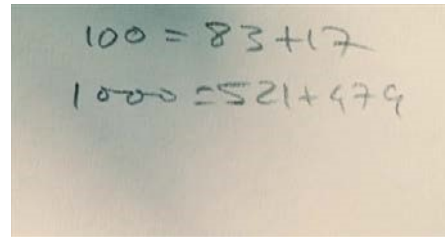 100 = 83+17
1000 = 521+479